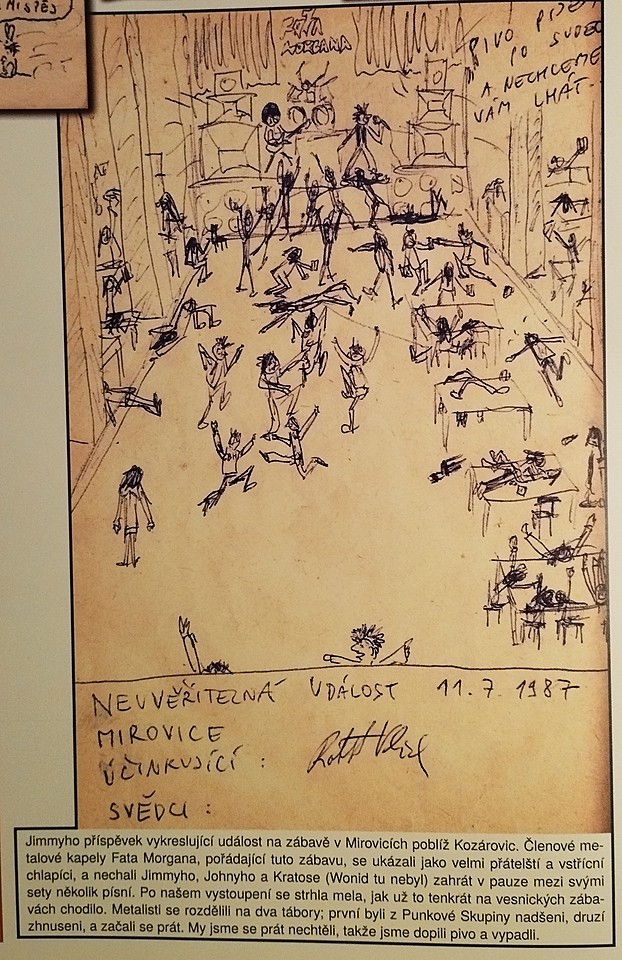 MISPĚS
FATA
MORGANA
PIVO
PO SUDECH
A NECHCEME
VÁM LHÁT.
NEUVĚŘITELNÁ UDÁLOST 11.7.1987
MIROVICE
ÚČINKUJÍCÍ :
SVĚDCI :
Jimmyho příspěvek vykreslující událost na zábavě v Mirovicích poblíž Kozárovic. Členové me-
talové kapely Fata Morgana, pořádající tuto zábavu, se ukázali jako velmi přátelští a vstřícní
chlapíci, a nechali Jimmyho, Johnyho a Kratose (Wonid tu nebyl) zahrát v pauze mezi svými
sety několik písní. Po našem vystoupení se strhla mela, jak už to tenkrát na vesnických zába-
vách chodilo. Metalisti se rozdělili na dva tábory; první byli z Punkové Skupiny nadšeni, druzí
zhnuseni, a začali se prát. My jsme se prát nechtěli, takže jsme dopili pivo a vypadli.